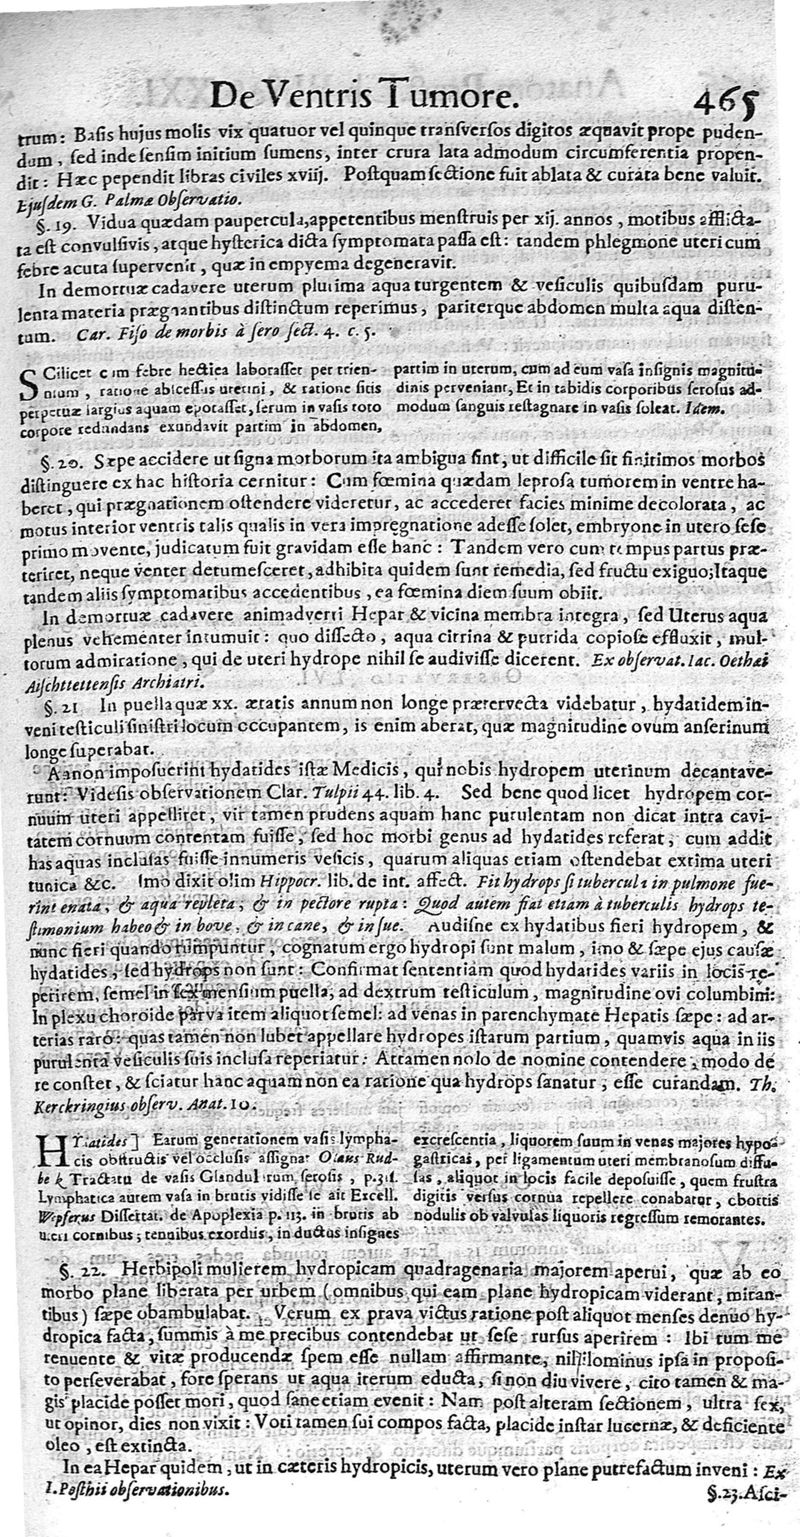 De Ventris Tumore. 465
trum: Basis hujus molis vix quatuor vel quinque transversos digitos æquavit prope puden-
dum, sed inde sensim initium sumens, inter crura lata admodum circumferentia propen-
dit: Hæc pependit libras civiles xviij. Postquam sectione fuit ablata & curata bene valuit.
Ejusdem G. Palmæ Observatio.
§. 19. Vidua quædam paupercula, appetentibus menstruis per xij. annos, motibus afflicta-
ta est convulsivis, atque hysterica dicta symptomata passa est: tandem phlegmone uteri cum
febre acuta supervenit, quæ in empyema degeneravit.
In demortuæ cadavere uterum plurima aqua turgentem & vesiculis quibusdam puru-
lenta materia prægnantibus distinctum reperimus, pariterque abdomen multa aqua disten-
tum. Car. Piso de morbis à sero sect. 4. c. 5.
SCilicet cum febre hectica laborasset per trien-
nium, ratione abscessus uterini, & ratione sitis
perpetuæ largius aquam epotasset, serum in vasis toto
corpore redundans exundavit partim in abdomen,
partim in uterum, cum ad eum vasa insignis magnitu-
dinis perveniant, Et in tabidis corporibus serosus ad-
modum sanguis restagnare in vasis soleat. Idem.
§. 20. Sæpe accidere ut signa morborum ita ambigua sint, ut difficile sit finitimos morbos
distinguere ex hac historia cernitur: Cum fœmina quædam leprosa tumorem in ventre ha-
beret, qui prægnationem ostendere videretur, ac accederet facies minime decolorata, ac
motus interior ventris talis qualis in vera impregnatione adesse solet, embryone in utero sese
primo movente, judicatum fuit gravidam esse hanc: Tandem vero cum tempus partus præ-
teriret, neque venter detumesceret, adhibita quidem sunt remedia, sed fructu exiguo; Itaque
tandem aliis symptomatibus accedentibus, ea fœmina diem suum obiit.
In demortuæ cadavere animadverti Hepar & vicina membra integra, sed Uterus aqua
plenus vehementer intumuit: quo dissecto, aqua citrina & putrida copiose effluxit, mul-
torum admiratione, qui de uteri hydrope nihil se audivisse dicerent. Ex observat. Iac. Oethæi
Aischttettensis Archiatri.
§. 21 In puella quæ xx. ætatis annum non longe prætervecta videbatur, hydatidem in-
veni testiculi sinistri locum occupantem, is enim aberat, quæ magnitudine ovum anserinum
longe superabat.
Aanon imposuerint hydatides istæ Medicis, qui nobis hydropem uterinum decantave-
runt? Videsis observationem Clar. Tulpii 44. lib. 4. Sed bene quod licet hydropem cor-
nuum uteri appelliret, vir tamen prudens aquam hanc purulentam non dicat intra cavi-
tatem cornuum contentam fuisse, sed hoc morbi genus ad hydatides referat, cum addit
has aquas inclusas fuisse innumeris vesicis, quarum aliquas etiam ostendebat extima uteri
tunica &c. Imo dixit olim Hippocr. lib. de int. affect. Fit hydrops si tubercula in pulmone fue-
rint enata, & aqua repleta, & in pectore rupta: Quod autem fiat etiam à tuberculis hydrops te-
stimonium habeo & in bove, & in cane, & in sue. Audisne ex hydatibus fieri hydropem, &
nunc fieri quando rumpuntur, cognatum ergo hydropi sunt malum, imo & sæpe ejus causæ
hydatides, sed hydrops non sunt: Confirmat sententiam quod hydatides variis in locis re-
perirem, semel in sex mensium puella, ad dextrum testiculum, magnitudine ovi columbini:
In plexu choroide parva item aliquot semel: ad venas in parenchymate Hepatis sæpe: ad ar-
terias raro: quas tamen non lubet appellare hydropes istarum partium, quamvis aqua in iis
purulenta vesiculis suis inclusa reperiatur: Attamen nolo de nomine contendere, modo de
re constet, & sciatur hanc aquam non ea ratione qua hydrops sanatur, esse curandam. Th.
Kerckringius observ. Anat. 10.
HYdatides] Earum generationem vasis lympha-
cis obstructis vel occlusis assignat Olaus Rud-
be k Tractatu de vasis Glandularum serosis, p. 31.
Lymphatica autem vasa in brutis vidisse se ait Excell.
Wepferus Dissertat. de Apoplexia p. 113. in brutis ab
uteri cornibus; tenuibus exordiis, in ductus insignes
excrescentia, liquorem suum in venas majores hypo-
gastricas, per ligamentum uteri membranosum diffu-
sas, aliquot in locis facile deposuisse, quem frustra
digitis versus cornua repellere conabatur, obortis
nodulis ob valvulas liquoris regressum remorantes.
§. 22. Herbipoli mulierem hydropicam quadragenaria majorem aperui, quæ ab eo
morbo plane liberata per urbem (omnibus qui eam plane hydropicam viderant, miran-
tibus) sæpe obambulabat. Verum ex prava victus ratione post aliquot menses denuo hy-
dropica facta, summis à me precibus contendebat ut sese rursus aperirem: Ibi tum me
renuente & vitæ producendæ spem esse nullam affirmante, nihilominus ipsa in proposi-
to perseverabat, fore sperans ut aqua iterum educta, si non diu vivere, cito tamen & ma-
gis placide posset mori, quod sane etiam evenit: Nam post alteram sectionem, ultra sex,
ut opinor, dies non vixit: Voti tamen sui compos facta, placide instar lucernæ, & deficiente
oleo, est extincta.
In ea Hepar quidem, ut in cæteris hydropicis, uterum vero plane putrefactum inveni: Ex
I. Posthii observationibus.
§. 23. Asci-